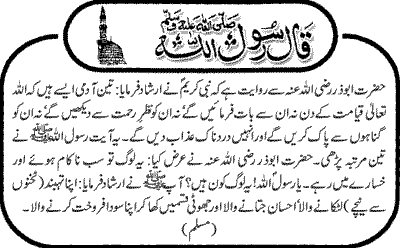 قال رسول اللہ صلی اللہ علیہ وسلم
حضرت ابوذر رضی اللہ عنہ سے روایت ہے کہ نبی کریمؐ نے ارشاد فرمایا: تین آدمی ایسے ہیں کہ اللہ
تعالیٰ قیامت کے دن نہ ان سے بات فرمائیں گے نہ ان کو نظرِ رحمت سے دیکھیں گے نہ ان کو
گناہوں سے پاک کریں گے اور انہیں دردناک عذاب دیں گے۔ یہ آیت رسول اللہ ﷺ نے
تین مرتبہ پڑھی۔ حضرت ابوذر رضی اللہ عنہ نے عرض کیا: یہ لوگ تو سب ناکام ہوئے اور
خسارے میں رہے۔ یا رسولؐ اللہ! یہ لوگ کون ہیں؟ آپ ﷺ نے ارشاد فرمایا: اپنا تہبند (ٹخنوں
سے نیچے) لٹکانے والا، احسان جتانے والا اور جھوٹی قسمیں کھا کر اپنا سودا فروخت کرنے والا۔
(مسلم)